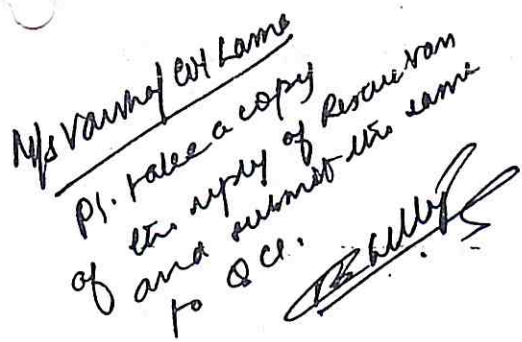 M/s
Pl. take a copy
of the reply of Rescue van
and submit the same
to QCI.